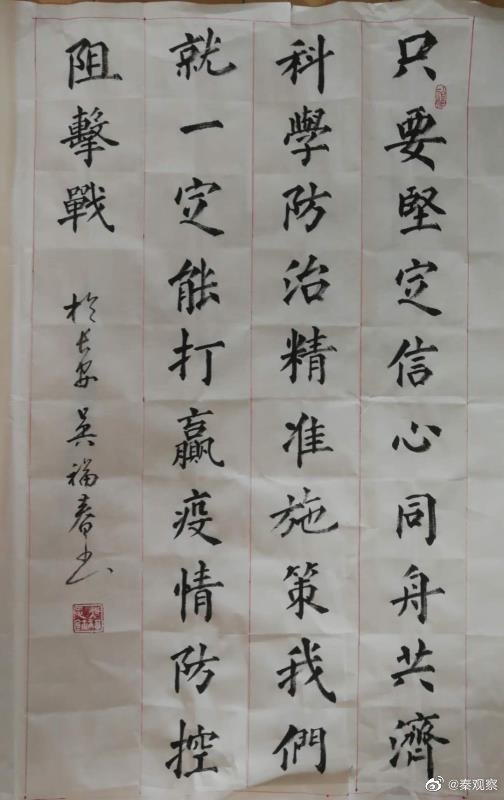 只要堅定信心同舟共濟
科學防治精准施策我們
就一定能打贏疫情防控
阻擊戰
於长安 吴福春书
@秦观察